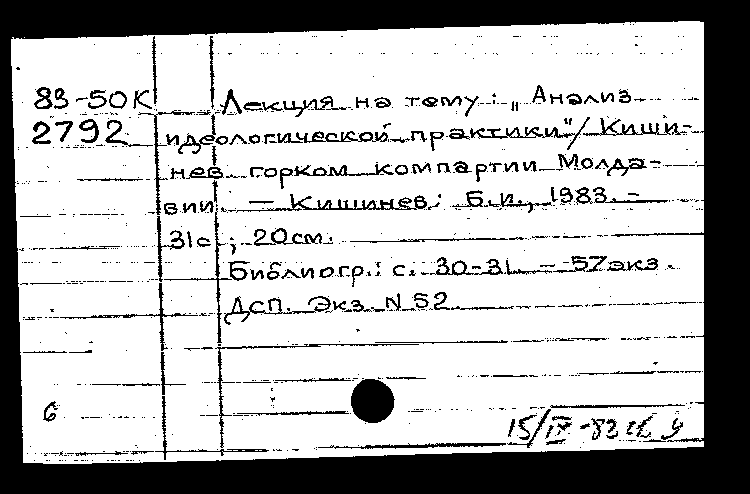 83-50К Лекция на тему: „Анализ
2792 идеологической практики"/ Киши-
нев. горком компартии Молда-
вии. — Кишинев: Б.и., 1983. -
31с.; 20см.
Библиогр.: с. 30-31. — 57экз.
ДСП. Экз. N 52
6
15/IX-83